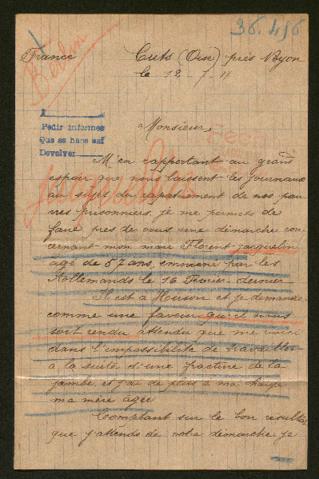 36.486
France
Berlin
Cuts (Oise) près Noyon
le 12-7-17
Pedir informes
Que se hara así
Devolver
Monsieur,
M'en rapportant au grand
espoir que nous laissent les journaux
au sujet du rapatriement de nos pau
vres prisonniers, je me permets de
faire près de vous une démarche con
cernant mon mari Florent Jacquelin
agé de 52 ans emmené par les
Allemands le 16 Février dernier
Il est à et je demande
comme une faveur qu'il nous
soit rendu attendu que me
dans l'impossibilité de travailler
à la suite d'une fracture de la
jambe et j'ai de plus à ma charge
ma mère agée
Comptant sur le bon résultat
que j'attends de notre démarche je